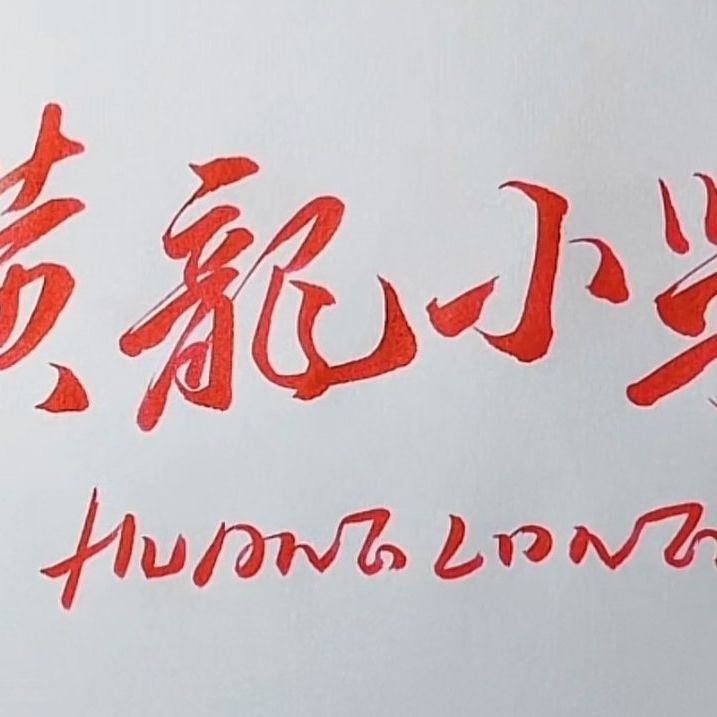 黄龍小学
HUANG LONG